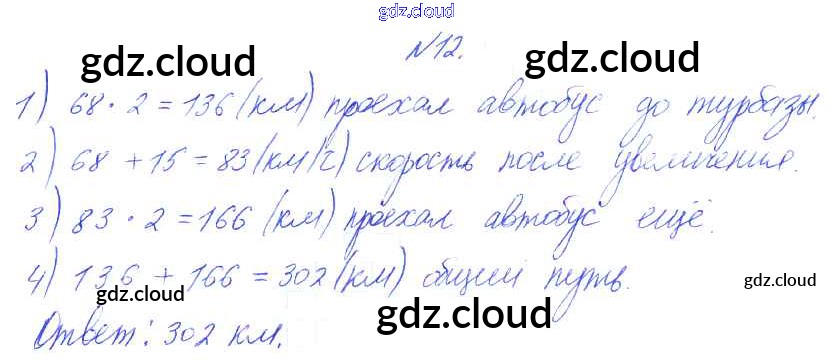 gdz.cloud
N12.
gdz.cloud gdz.cloud
1) 68 · 2 = 136 (км) проехал автобус до турбазы.
2) 68 + 15 = 83 (км/ч) скорость после увеличения.
3) 83 · 2 = 166 (км) проехал автобус ещё.
4) 136 + 166 = 302 (км) общий путь.
gdz.cloud gdz.cloud
Ответ: 302 км.
gdz.cloud